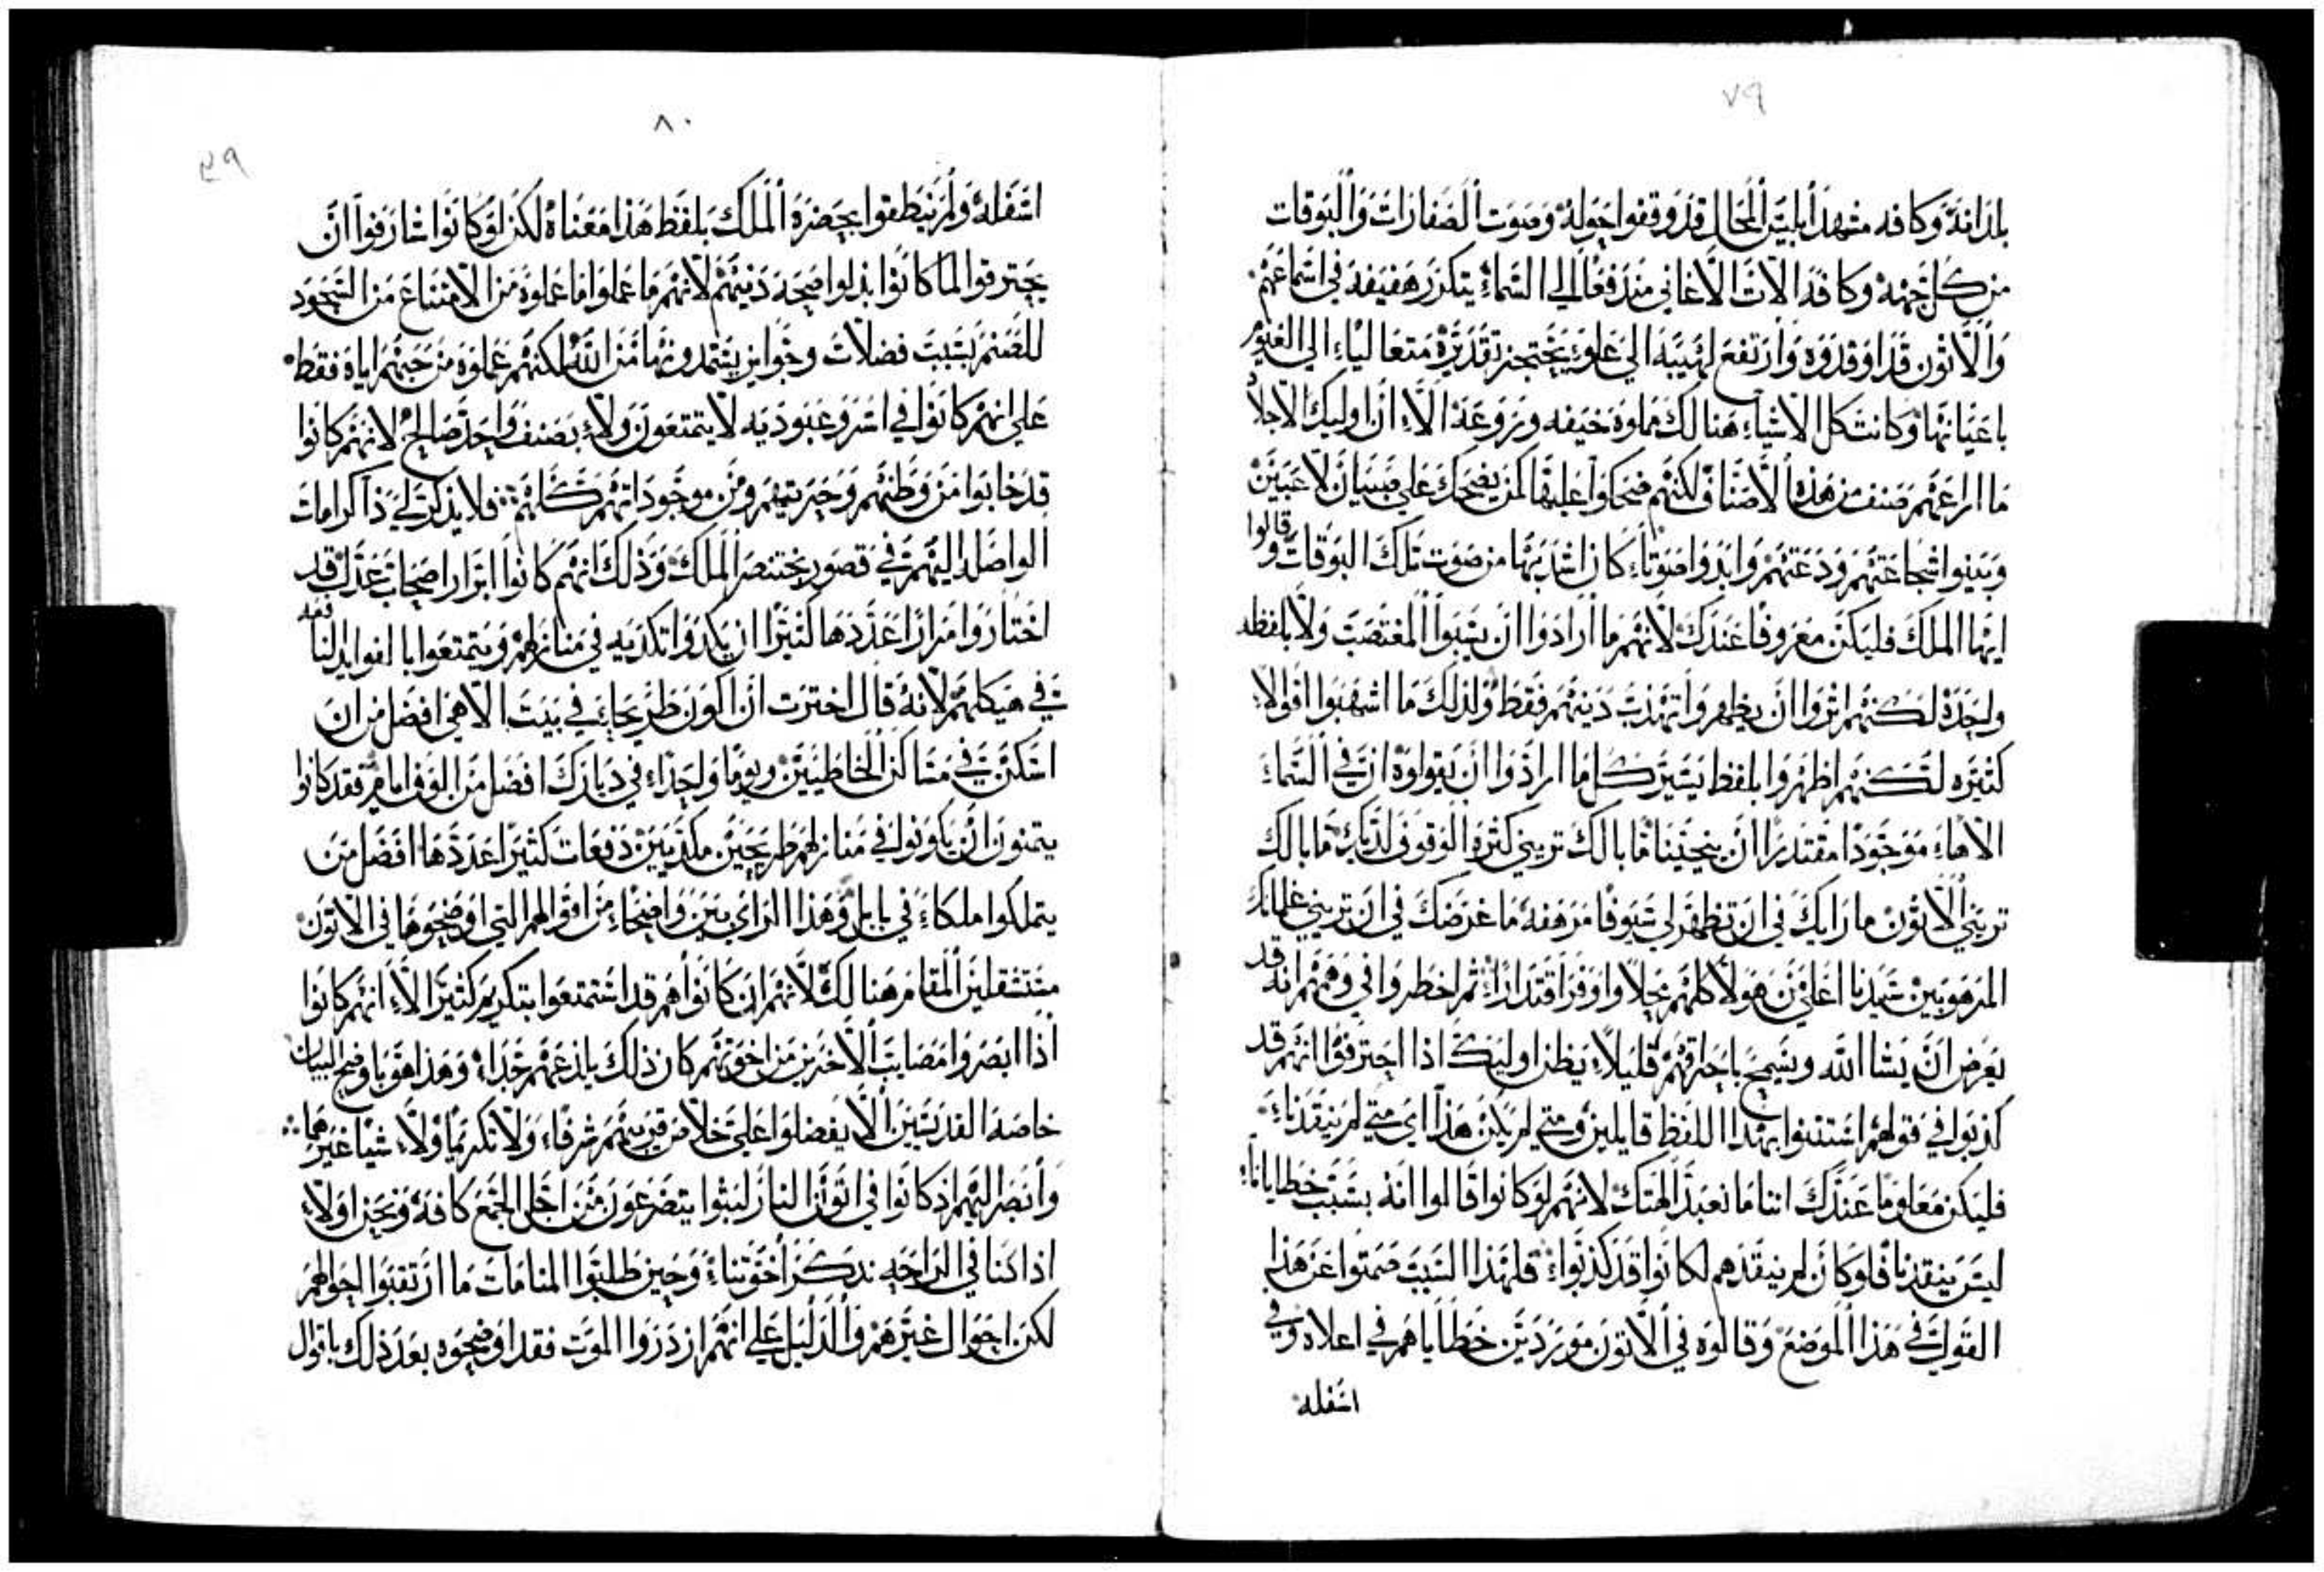 ٧٩
بلذانة وكافه مشهد ابليس المحال قد وقفوا حوله وصوت الصفارات والبوقات
من كل جهه وكافة الات الاغاني مندفعا الي السماء يتكرر هفيفه في اسماعهم
والاتون قد اوقدوه وارتفع لهيبه الي علو يحتجز تقديره متعاليا الي الغيوم
باعيانها وكانت كل الاشياء هنالك مملوه خيفه وروعة الا ان اوليك الاجلا
ما ارعبهم صنف من هذه الاصناف لكنهم ضحكوا عليها كمن يضحك علي صبيان لاعبين
وبينوا شجاعتهم ودعتهم وابدوا صوتا كان اشد بها من صوت تلك البوقات وقالوا
ايها الملك فليكن معروفا عندك لانهم ما ارادوا ان يسبوا المغتصب ولا بلفظه
واحدة لكنهم اثروا ان يظهروا تهذيب دينهم فقط ولذلك ما اسهبوا اقوالا
كثيره لكنهم اظهروا بلفظ يسير كل ما ارادوا ان يقولوه ان في السماء
الاها موجودا مقتدرا ان ينجينا ما بالك تريني كثرة الوقوف لديك ما بالك
تريني الاتون ما رايك في ان تظهر لي سيوفا مرهفه ما غرضك في ان تريني غلمانك
المرهوبين سيدنا اعلي من هولا كلهم محلا واوفر اقتدارا ثم اخطروا في وهمهم انه قد
يعرض ان يشا الله ويسمح باحتراقهم قليلا يظن اوليك اذا احترقوا انهم قد
كذبوا في قولهم استثنوا بهذا اللفظ قايلين ومتي لم يكن هذا اي متي لم ينقذنا
فليكن معلوما عندك اننا ما نعبد الهتك لانهم لو كانوا قالوا انه بسبب خطايانا
ليس ينقذنا فلو كان لم ينقذهم لكانوا قد كذبوا فلهذا السبب صمتوا عن هذا
القول في هذا الموضع وقالوه في الاتون موردين خطاياهم في اعلاه وفي
اسفله
٨٠
٤٩
اسفله ولم ينطقوا بحضرة الملك بلفظ هذا معناه لكن لو كانوا شارفوا ان
يحترقوا لما كانوا بذلوا صحة دينهم لانهم ما عملوا ما عملوه من الامتناع من السجود
للصنم بسبب فضلات وجوايز يستمدونها من الله لكنهم عملوه من حبهم اياه فقط
علي انهم كانوا في اسر وعبوديه لا يتمتعون ولا بصنف واحد صالح لانهم كانوا
قد خابوا من وطنهم وحريتهم ومن موجوداتهم كلهم فلا يذكر لي ذاكر امات
الواصلة اليهم في قصور بختنصر الملك وذلك انهم كانوا ابرارا اصحاب عدل قد
اختاروا مرارا عددها كثيرا ان يكدوا تكديه في منازلهم ويتمتعوا بالفوايد النافعه
في هيكلهم لانه قال اخترت ان اكون طريحا في بيت الاهي افضل من ان
اسكن في مساكن الخاطيين ويوما واحدا في ديارك افضل من الوف امامهم فقد كانوا
يتمنون ان يكونوا في منازلهم طريحين مكديين دفعات كثيرا عددها افضل من
يتملكوا ملكا في بابل وهذا الراي بين واضحا من اقوالهم التي اوضحوها في الاتون
مستثقلين المقام هنالك لانهم ان كانوا هم قد استمتعوا بتكريم كثيرا الا انهم كانوا
اذا ابصروا مصايب الاخرين من اخوتهم كان ذلك يلذعهم جدا وهذا هو باوضح البيان
خاصة القديسين الا يفضلوا علي خلاص قريبهم شرفا ولا تكريما ولا شيا غيرهما
وابصر اليهم اذ كانوا في اتون النار لبثوا يتضرعون من اجل الجمع كافه ونحن اولا
اذا كنا في الراحه نذكر اخوتنا وحين طلبوا المنامات ما ارتقبوا احوالهم
لكن احوال غيرهم والدليل علي انهم ازدروا الموت فقد اوضحوه بعد ذلك باقوال